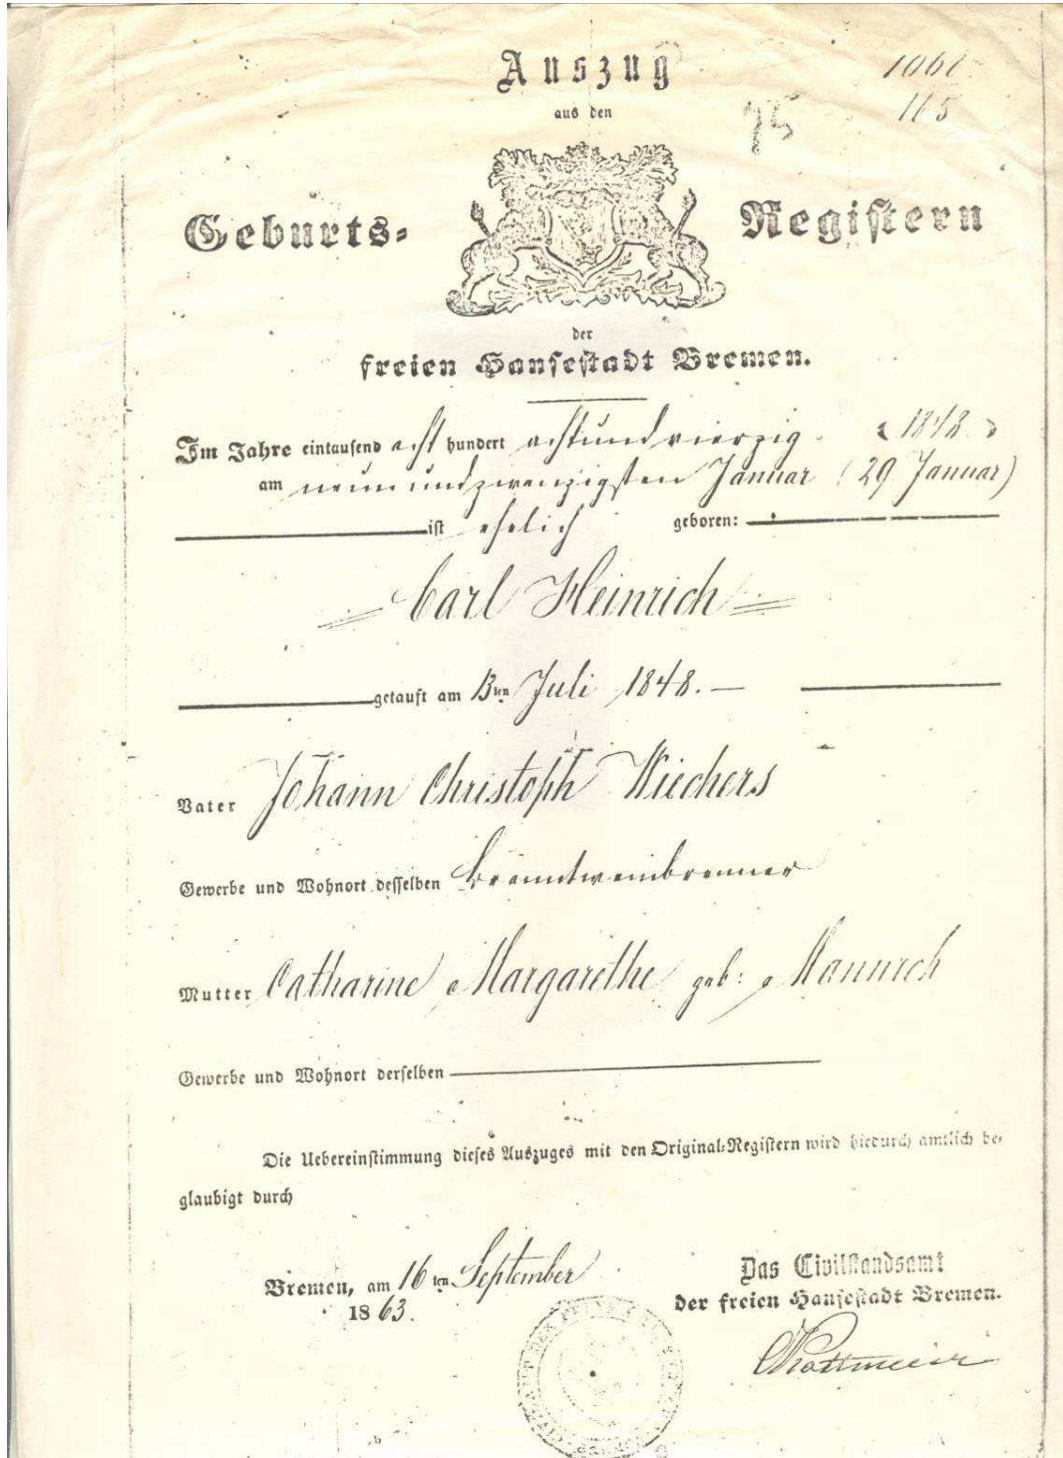 Auszug
aus den
75
1061
165
Geburts-
Registern
der
freien Hansestadt Bremen.
Im Jahre eintausend acht hundert achtundvierzig. (1848.)
am neunundzwanzigsten Januar (29 Januar)
ist ehelich geboren:
Carl Heinrich
getauft am 13ten Juli 1848.
Vater Johann Christoph Wiechers
Gewerbe und Wohnort desselben Branntweinbrenner
Mutter Catharine Margarethe geb: Mannich
Gewerbe und Wohnort derselben
Die Uebereinstimmung dieses Auszuges mit den Original-Registern wird hiedurch amtlich be-
glaubigt durch
Bremen, am 16ten September
1863.
Das Civilstandsamt
der freien Hansestadt Bremen.